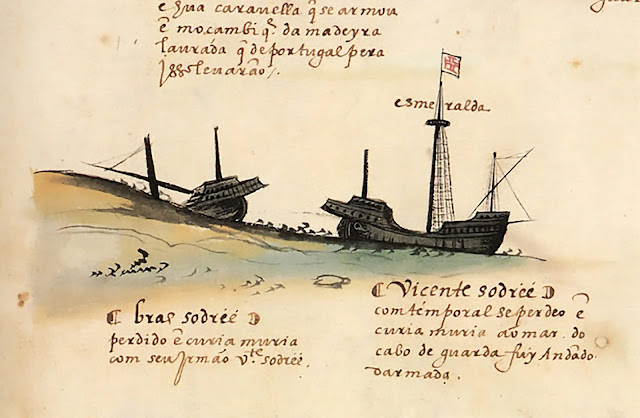 e hua caravella q̃ se armou
ẽ moçambiq̃. da madeyra
laurada q̃ de portugal pera
Isso levarão.
esmeralda
bras sodréé
perdido ẽ curia muria
com seu Irmão Vte sodréé.
Vicente sodréé
com temporal se perdeo ẽ
curia muria ao mar. do
cabo de guarda fuy Andãdo
darmada.